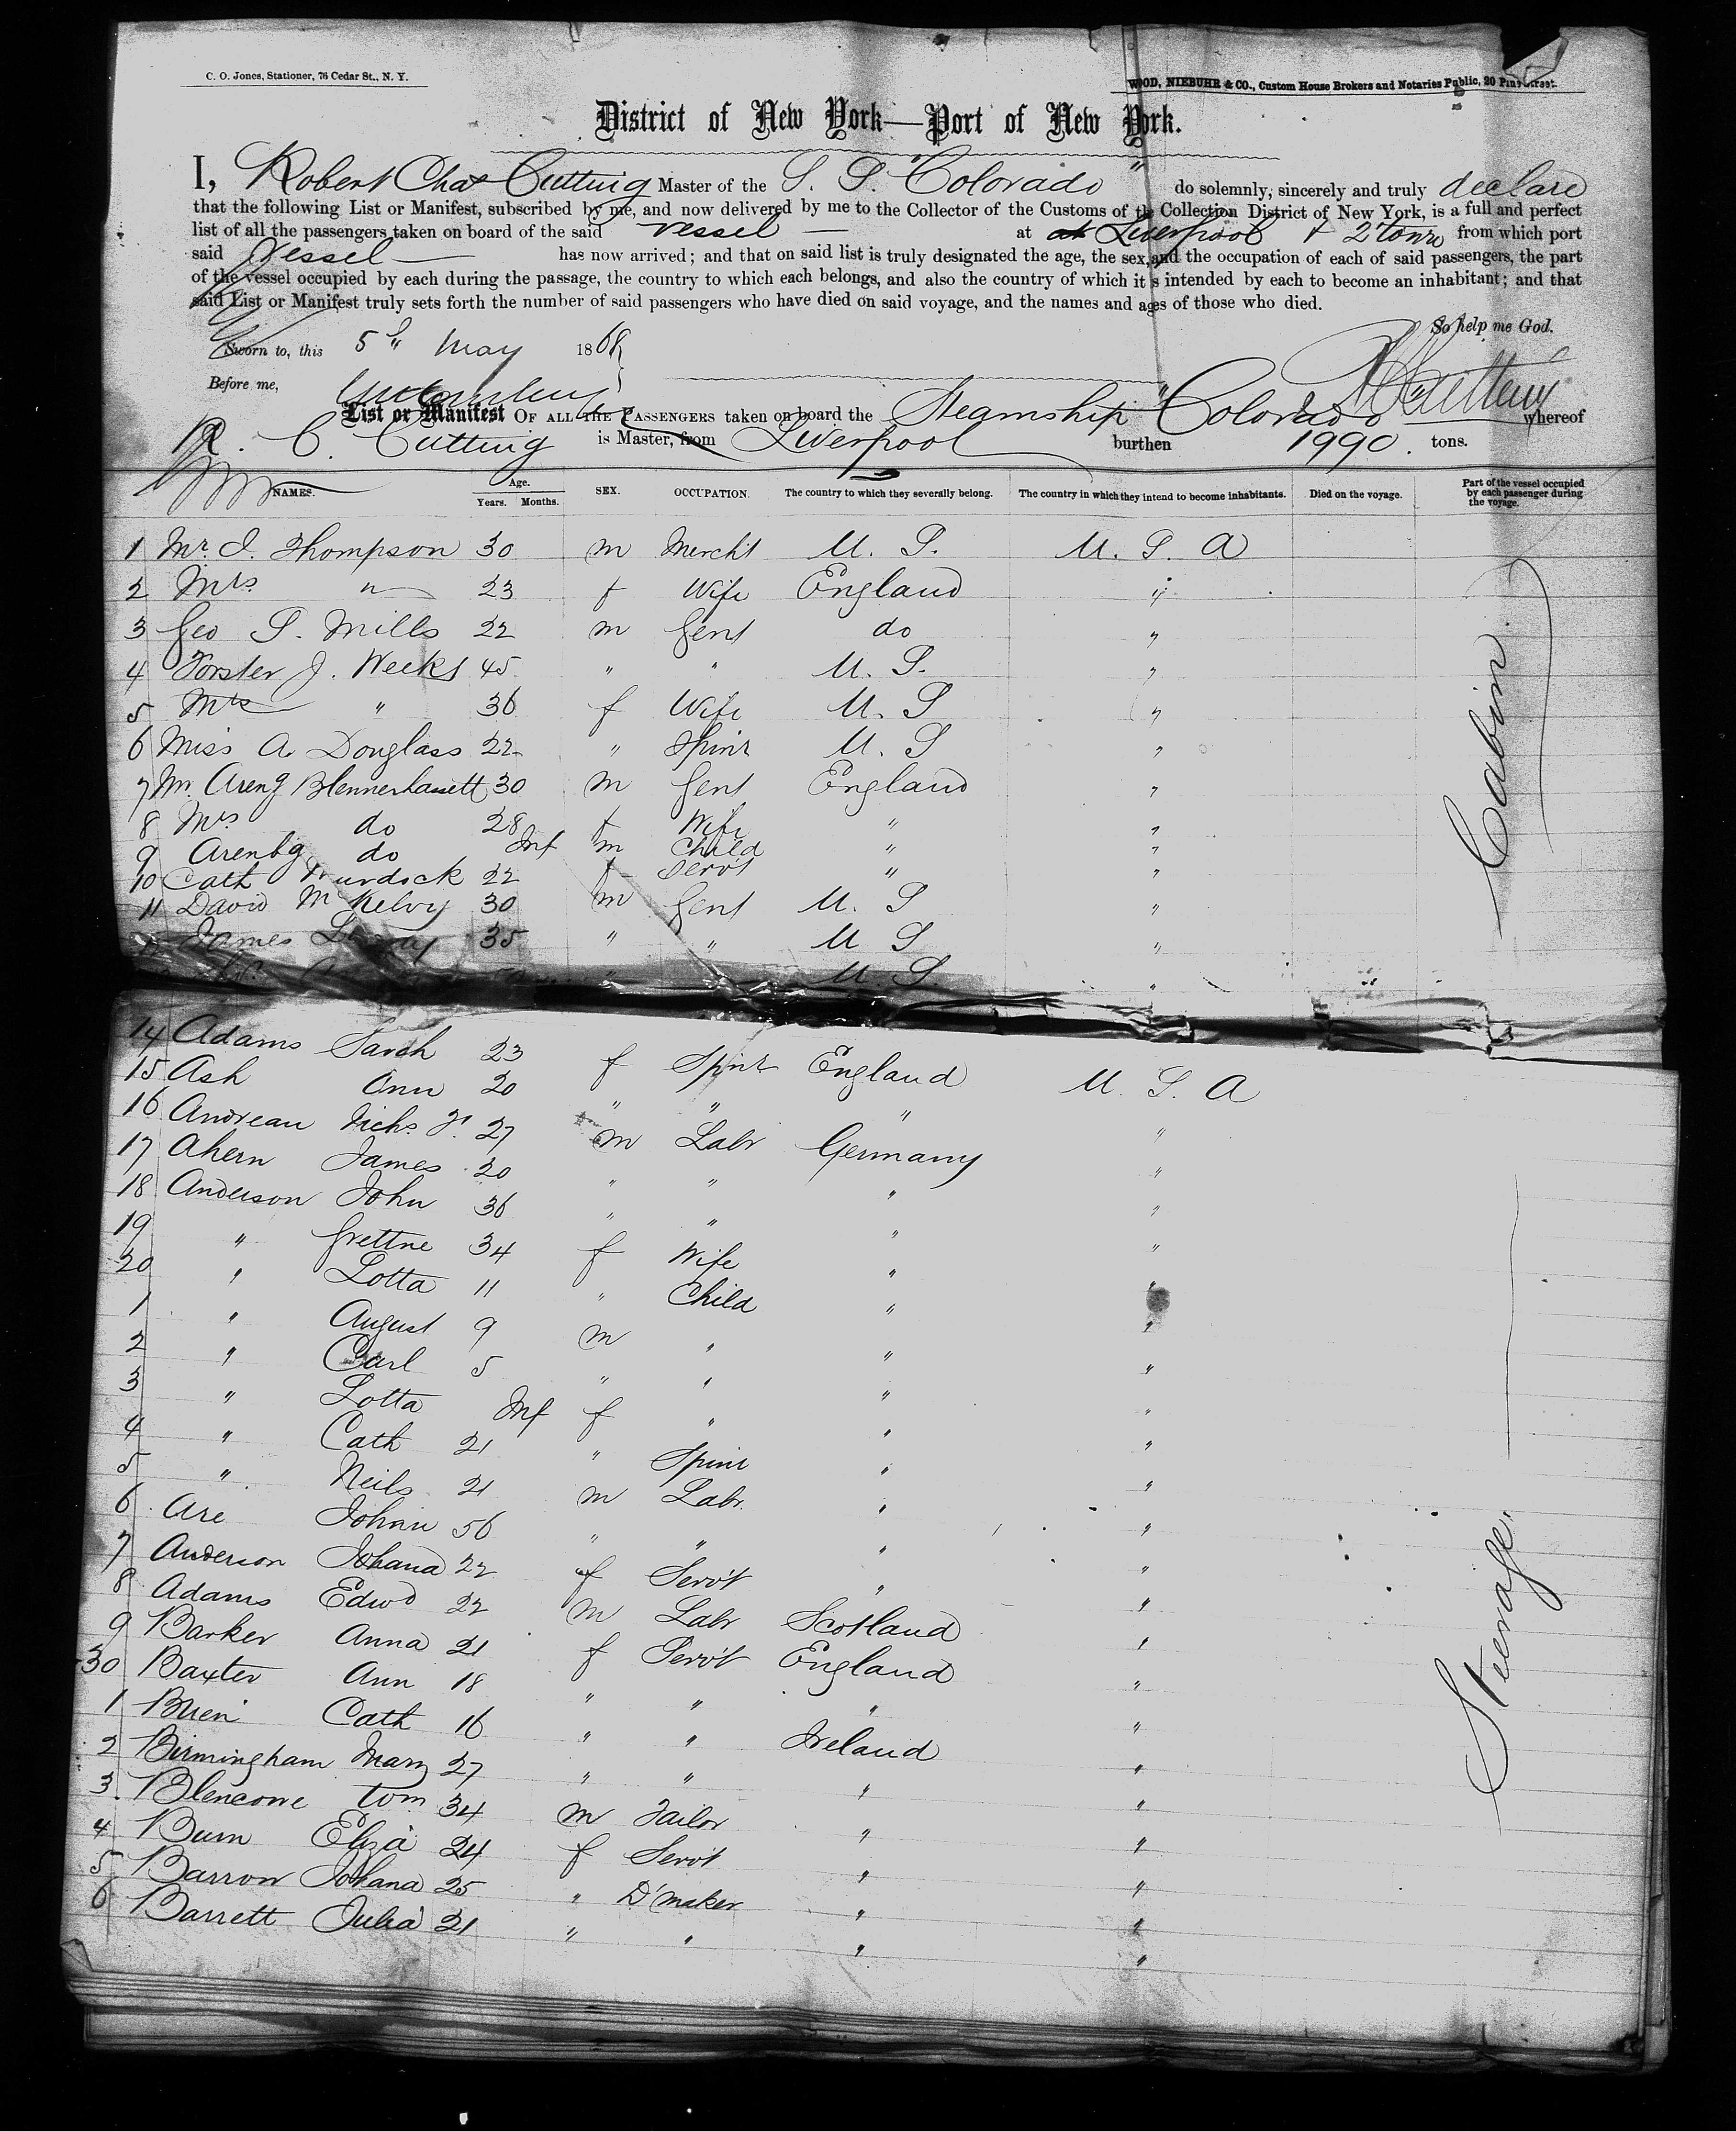 C. O. Jones, Stationer, 76 Cedar St., N. Y.
WOOD, NIEBUHR & CO., Custom House Brokers and Notaries Public, 20 Pine Street.
District of New York—Port of New York.
I, Robert Chas Cutting Master of the S. S. "Colorado" do solemnly, sincerely and truly declare
that the following List or Manifest, subscribed by me, and now delivered by me to the Collector of the Customs of the Collection District of New York, is a full and perfect
list of all the passengers taken on board of the said vessel — at Liverpool + 2'tonn from which port
said Vessel — has now arrived; and that on said list is truly designated the age, the sex, and the occupation of each of said passengers, the part
of the vessel occupied by each during the passage, the country to which each belongs, and also the country of which it is intended by each to become an inhabitant; and that
said List or Manifest truly sets forth the number of said passengers who have died on said voyage, and the names and ages of those who died.
So help me God.
Sworn to, this 5th May 1868
Before me,
List or Manifest OF ALL THE PASSENGERS taken on board the Steamship "Colorado" whereof
R. C. Cutting is Master, from Liverpool burthen 1990. tons.
NAMES. Age. Years. Months. SEX. OCCUPATION. The country to which they severally belong. The country in which they intend to become inhabitants. Died on the voyage. Part of the vessel occupied by each passenger during the voyage.
1 Mr. J. Thompson 30 m Mercht U. S. U. S. A
2 Mrs. " 23 f Wife England "
3 Geo S. Mills 22 m Gent do "
4 Forster J. Weeks 45 " " U. S. "
5 Mrs " 36 f Wife U. S "
6 Miss A. Douglass 22 " Spinr U. S "
7 Mr. Areng Blennerhasett 30 m Gent England "
8 Mrs do 28 f Wife " "
9 Arenbg do Inf m Child " "
10 Cath Murdock 22 f Servt " "
11 David McKelvy 30 m Gent U. S "
James 35 " " U S "
U. S. "
Cabin
14 Adams Sarah 23 f Spinr England U. S. A
15 Ash Ann 20 " " " "
16 Andreau Nichs 27 m Labr Germany "
17 Ahern James 20 " " " "
18 Anderson John 36 " " " "
19 " Grettne 34 f Wife " "
20 " Lotta 11 " Child " "
1 " August 9 m " " "
2 " Carl 5 " " " "
3 " Lotta Inf f " " "
4 " Cath 21 " Spinr " "
5 " Neils 21 m Labr. " "
6 Are Johan 56 " " " "
7 Anderson Johana 22 f Servt " "
8 Adams Edwd 22 m Labr Scotland "
9 Barker Anna 21 f Servt England "
30 Baxter Ann 18 " " " "
1 Brien Cath 16 " " Ireland "
2 Birmingham Mary 27 " " " "
3 Blencowe Wm 34 m Tailor " "
4 Burn Eliza 24 f Servt " "
5 Barron Johana 25 " D'maker " "
6 Barrett Julia 21 " " " "
Steerage.